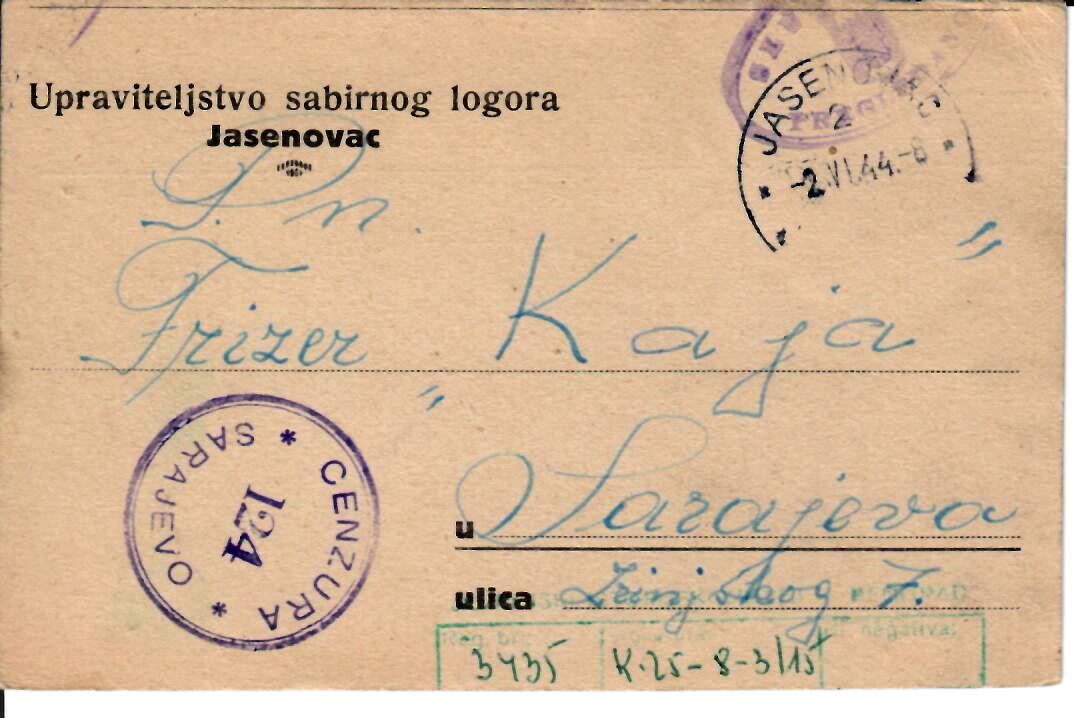 Upraviteljstvo sabirnog logora
Jasenovac
JASENOVAC
2
-2.VI.44.-8
P. n.
Frizer „Kaja"
CENZURA * SARAJEVO *
124
u Sarajevo
ulica Zrinjskog 7.
Reg. br.
negativa:
3435
K.25-8-3/15